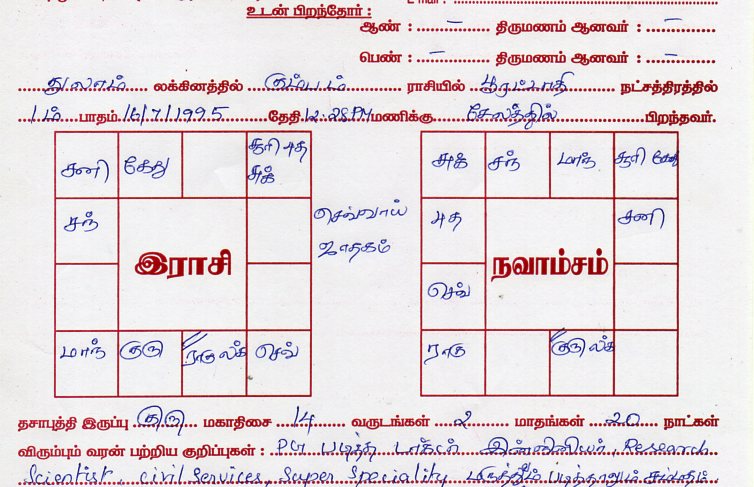 உடன் பிறந்தோர் :
ஆண் : – திருமணம் ஆனவர் : –
பெண் : – திருமணம் ஆனவர் : –
துலாம் லக்கினத்தில் கும்பம் ராசியில் பூரட்டாதி நட்சத்திரத்தில்
1ம் பாதம் 16/7/1995 தேதி 12.28PM மணிக்கு சேலத்தில் பிறந்தவர்.
சனி கேது சூரி புத சுக்
சந்
இராசி
மாந் குரு ராகு லக் செவ்
செவ்வாய்
ஜாதகம்
சுக் சந் மாந் சூரி கேது
புத சனி
நவாம்சம்
செவ்
ராகு குரு லக்
தசாபுத்தி இருப்பு குரு மகாதிசை 14 வருடங்கள் 2 மாதங்கள் 20 நாட்கள்
விரும்பும் வரன் பற்றிய குறிப்புகள் : PG படித்த டாக்டர் இன்ஜினியர், Research
Scientist, Civil Services, Super Speciality மருத்துவம் படித்தாலும் சம்மதம்